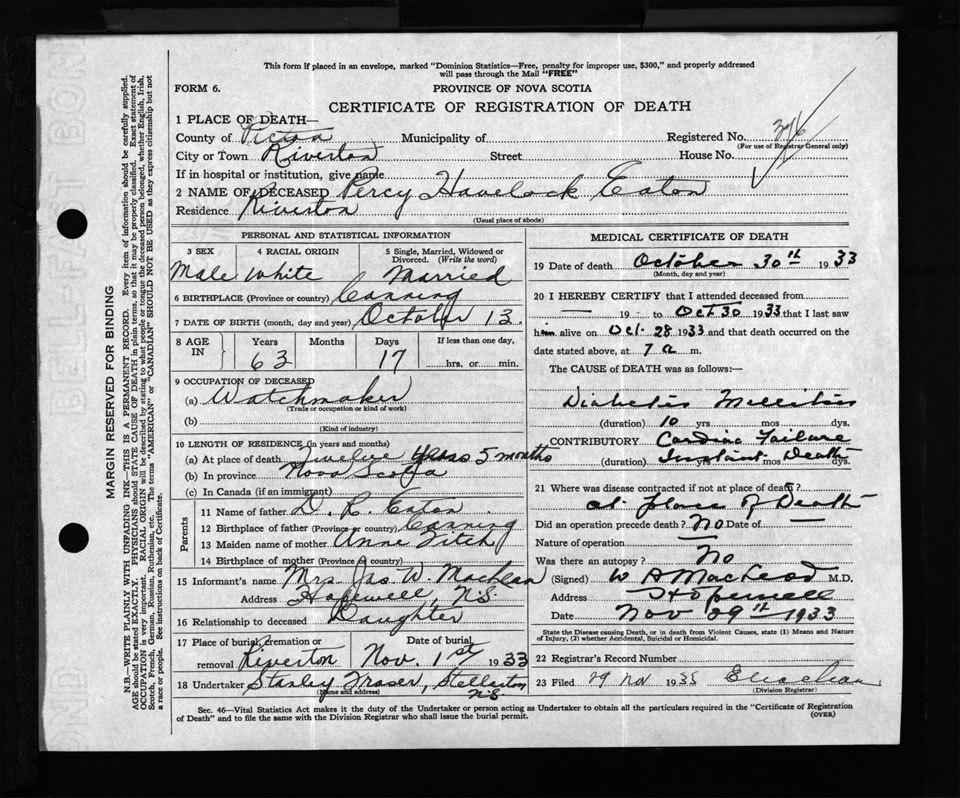 This form if placed in an envelope, marked "Dominion Statistics—Free, penalty for improper use, $300," and properly addressed
will pass through the Mail "FREE"
FORM 6.
PROVINCE OF NOVA SCOTIA
CERTIFICATE OF REGISTRATION OF DEATH
1 PLACE OF DEATH—
County of Pictou Municipality of Registered No. 376
(For use of Registrar General only)
City or Town Riverton Street House No.
If in hospital or institution, give name
2 NAME OF DECEASED Percy Havelock Eaton
Residence Riverton
(Usual place of abode)
PERSONAL AND STATISTICAL INFORMATION
3 SEX 4 RACIAL ORIGIN 5 Single, Married, Widowed or Divorced. (Write the word)
Male White Married
6 BIRTHPLACE (Province or country) Canning
7 DATE OF BIRTH (month, day and year) October 13.
8 AGE IN Years Months Days If less than one day,
63 17 hrs. or min.
9 OCCUPATION OF DECEASED
(a) Watchmaker
(Trade or occupation or kind of work)
(b)
(Kind of industry)
10 LENGTH OF RESIDENCE (in years and months)
(a) At place of death Twelve years 5 months
(b) In province Nova Scotia
(c) In Canada (if an immigrant)
Parents
11 Name of father D. R. Eaton
12 Birthplace of father (Province or country) Canning
13 Maiden name of mother Anne Fitch
14 Birthplace of mother (Province or country)
15 Informant's name Mrs. Jas. W. MacLean
Address Hopewell, N.S.
16 Relationship to deceased Daughter
17 Place of burial, cremation or removal Riverton Date of burial Nov. 1st 1933
18 Undertaker Stanley Fraser, Stellarton N.S.
(Name and address)
MEDICAL CERTIFICATE OF DEATH
19 Date of death October 30th 1933
(Month, day and year)
20 I HEREBY CERTIFY that I attended deceased from
— 19 - to Oct 30 1933 that I last saw
him alive on Oct 28 1933 and that death occurred on
date stated above, at 7 a m.
The CAUSE of DEATH was as follows:—
Diabetis Mellitus
(duration) 10 yrs mos dys.
CONTRIBUTORY Cardiac Failure
(duration) Instant mos Death dys.
21 Where was disease contracted if not at place of death?
at place of Death
Did an operation precede death? No Date of —
Nature of operation —
Was there an autopsy? No
(Signed) W A MacLeod M.D.
Address Hopewell
Date Nov 29th 1933
State the Disease causing Death, or in death from Violent Causes, state (1) Means and Nature
of Injury, (2) whether Accidental, Suicidal or Homicidal.
22 Registrar's Record Number
23 Filed 29 Nov 1933
(Division Registrar)
Sec. 46—Vital Statistics Act makes it the duty of the Undertaker or person acting as Undertaker to obtain all the particulars required in the "Certificate of Registration
of Death" and to file the same with the Division Registrar who shall issue the burial permit.
(OVER)
MARGIN RESERVED FOR BINDING
N.B.—WRITE PLAINLY WITH UNFADING INK—THIS IS A PERMANENT RECORD. Every item of information should be carefully supplied.
AGE should be stated EXACTLY. PHYSICIANS should STATE CAUSE OF DEATH in plain terms, so that it may be properly classified. Exact statement of
OCCUPATION is very important. RACIAL ORIGIN will be described by stating to what people or tongue the deceased person belonged, whether English, Irish,
Scotch, French, German, Russian, Ruthenian, etc. The terms "AMERICAN" or "CANADIAN" SHOULD NOT BE USED as they express citizenship but not
a race or people. See instructions on back of Certificate.